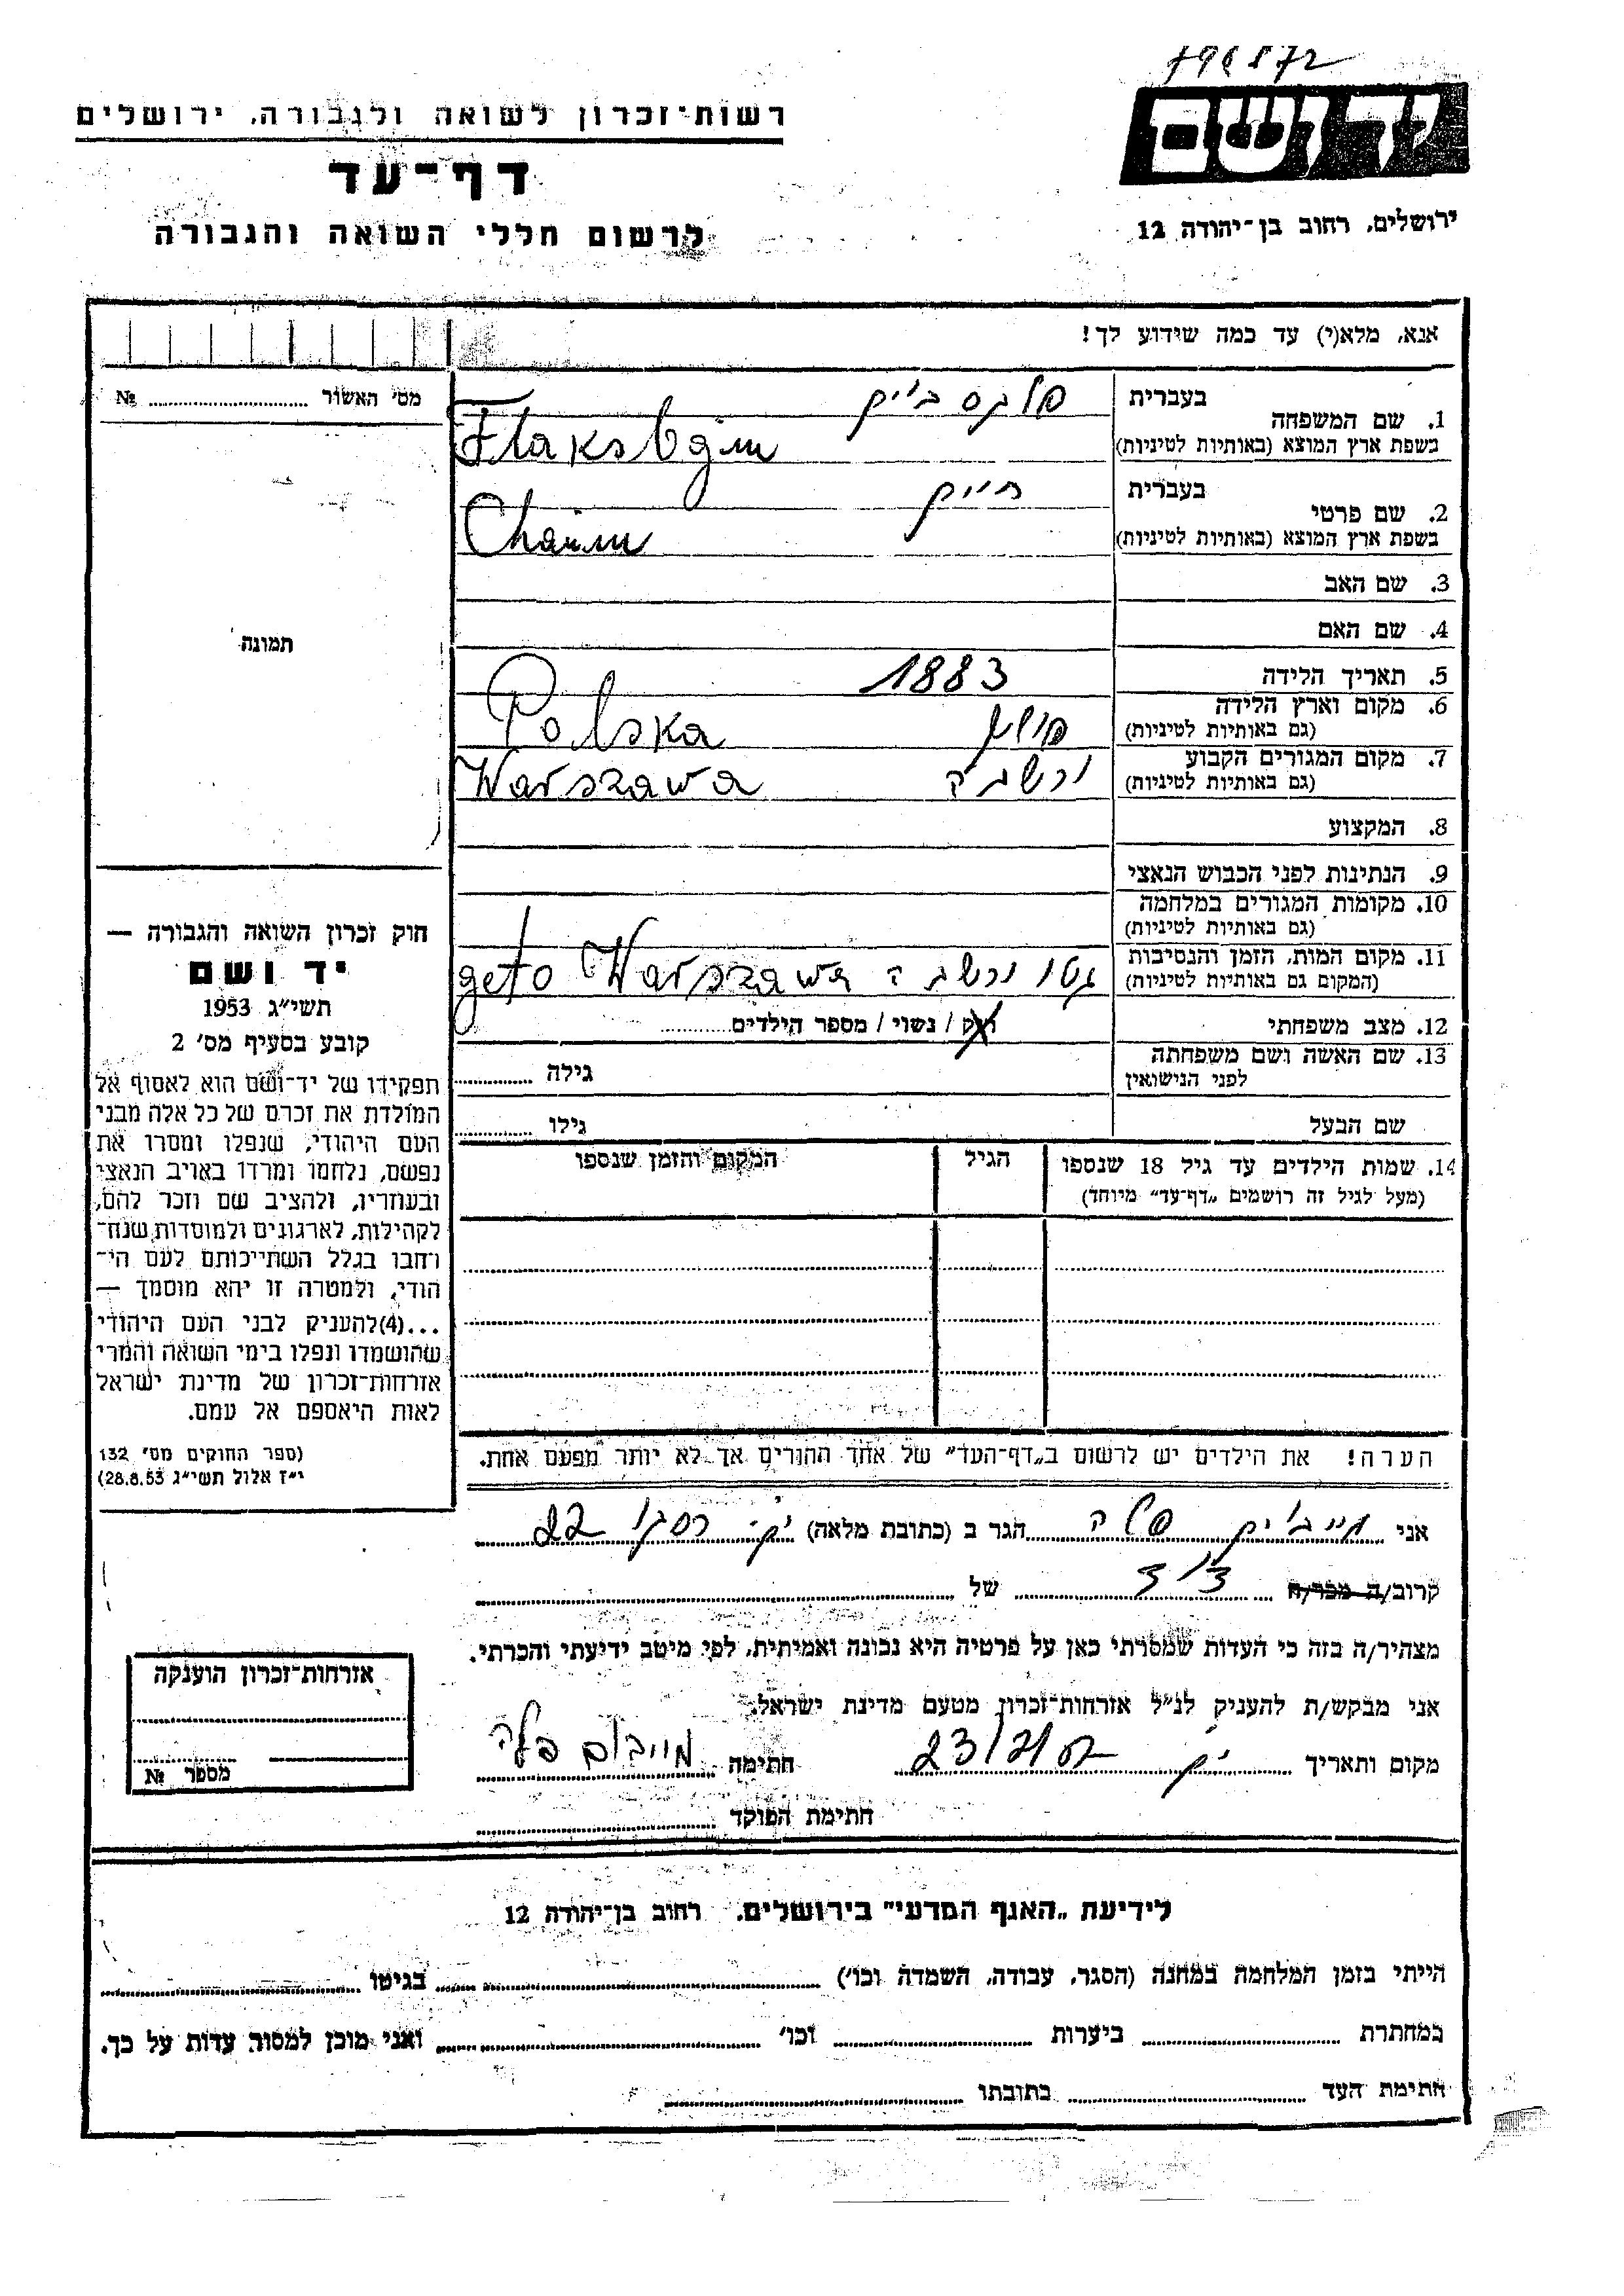 796872
יד ושם
רשות־זכרון לשואה ולגבורה, ירושלים
דף־עד
לרשום חללי השואה והגבורה
ירושלים, רחוב בן־יהודה 12
אנא, מלא(י) עד כמה שידוע לך!
מס׳ האשור № 
בעברית
1. שם המשפחה
בשפת ארץ המוצא (באותיות לטיניות)
Flaksbajm
בעברית חיים
2. שם פרטי
בשפת ארץ המוצא (באותיות לטיניות)
Chaim
3. שם האב
4. שם האם
תמונה
5. תאריך הלידה 1883
6. מקום וארץ הלידה
(גם באותיות לטיניות) פולין Polska
7. מקום המגורים הקבוע
(גם באותיות לטיניות) ורשבה Warszawa
8. המקצוע
9. הנתינות לפני הכבוש הנאצי
10. מקומות המגורים במלחמה
(גם באותיות לטיניות)
11. מקום המות, הזמן והנסיבות
(המקום גם באותיות לטיניות) גטו ורשבה geto Warszawa
12. מצב משפחתי רוק / נשוי / מספר הילדים
13. שם האשה ושם משפחתה
לפני הנישואין גילה
שם הבעל גילו
14. שמות הילדים עד גיל 18 שנספו הגיל המקום והזמן שנספו
(מעל לגיל זה רושמים „דף־עד” מיוחד)
חוק זכרון השואה והגבורה —
יד ושם
תשי״ג 1953
קובע בסעיף מס׳ 2
תפקידו של יד־ושם הוא לאסוף אל
המולדת את זכרם של כל אלה מבני
העם היהודי, שנפלו ומסרו את
נפשם, נלחמו ומרדו באויב הנאצי
ובעוזריו, ולהציב שם וזכר להם,
לקהילות, לארגונים ולמוסדות שנח־
רחבו בגלל השתייכותם לעם הי־
הודי, ולמטרה זו יהא מוסמך —
...(4)להעניק לבני העם היהודי
שהושמדו ונפלו בימי השואה והמרי
אזרחות־זכרון של מדינת ישראל
לאות היאספם אל עמם.
(ספר החוקים מס׳ 132
י״ז אלול תשי״ג 28.8.53)
הערה! את הילדים יש לרשום ב„דף־העד” של אחד ההורים אך לא יותר מפעם אחת.
אני הגר ב (כתובת מלאה) 22
קרוב/ה מכר/ה של
מצהיר/ה בזה כי העדות שמסרתי כאן על פרטיה היא נכונה ואמיתית, לפי מיטב ידיעתי והכרתי.
אני מבקש/ת להעניק לנ״ל אזרחות־זכרון מטעם מדינת ישראל.
מקום ותאריך חתימה
חתימת הפוקד
אזרחות־זכרון הוענקה
מספר №
לידיעת „האגף המדעי” בירושלים, רחוב בן־יהודה 12
הייתי בזמן המלחמה במחנה (הסגר, עבודה, השמדה וכו׳) בגיטו
במחתרת ביערות וכו׳ ואני מוכן למסור עדות על כך.
חתימת העד כתובתו